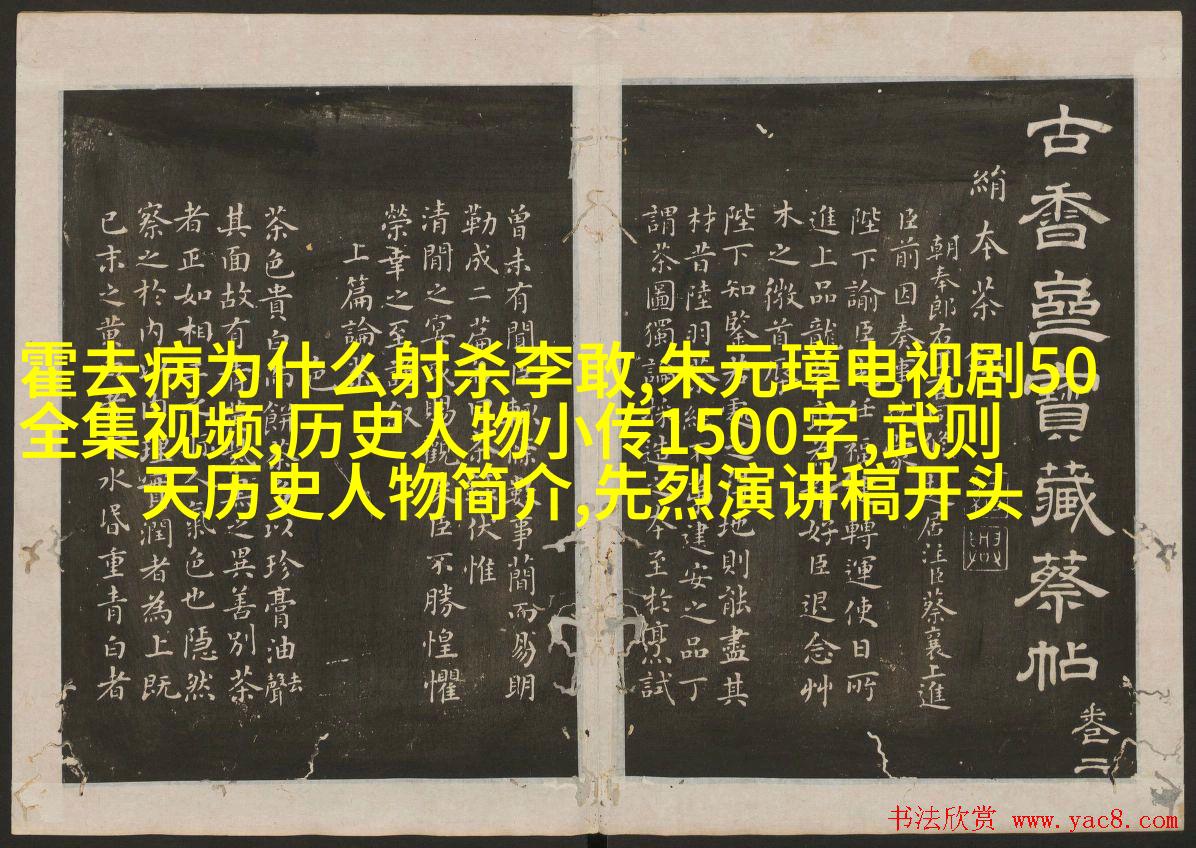 霍去病为什么射杀李敢,朱元璋电视剧50
全集视频,历史人物小传1500字,武则
天历史人物简介,先烈演讲稿开头
古香齋寶藏蔡帖 卷二
絹本茶
朝奉郎右居注臣蔡襄上進
臣前因奏事
陛下諭臣任福轉運使日所
進上品龍好臣退念艸
木之微首
陛下知鑒若處之地則能盡其
材昔陸羽建安之品丁
謂茶圖獨論採造本至於烹試
曾未有聞臣輒條數事簡而易明
勒成二篇伏惟
清閒之宴賜觀臣不勝惶懼
榮幸之至叙
上篇論茶
色
茶色貴白而餅茶以珍膏油去聲
其面故有之異善別茶
者正如相氣色也隱然
察之於內潤者為上既
已末之黃水昏重青白者
书法欣赏 www.yac8.com